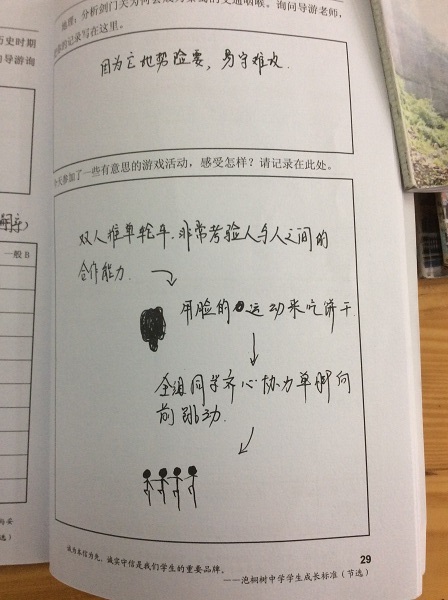 地理，分析剑门关为何会成为秦蜀的交通咽喉。询问导游老师，
的记录写在这里。
因为它地势险要，易守难攻.
今天参加了一些有意思的游戏活动，感受怎样？请记录在此处。
双人推单轮车.非常考验人与人之间的
合作能力.
用脸的运动来吃饼干.
全组同学齐心协力单脚向
前跳动.
诚为本信为先，诚实守信是我们学生的重要品牌。
29
——泡桐树中学学生成长标准（节选）
历史时期
导游询
一般B
选）